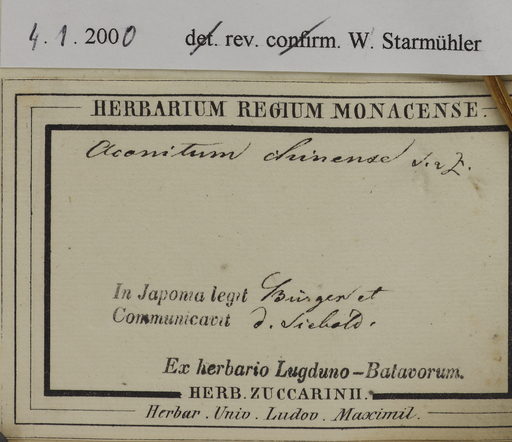 4. 1. 2000 det. rev. confirm. W. Starmühler
HERBARIUM REGIUM MONACENSE.
Aconitum chinense S. & Z.
In Japonia legit Bürger et
Communicavit d. Siebold.
Ex herbario Lugduno-Batavorum.
HERB. ZUCCARINII.
Herbar. Univ. Ludov. Maximil.